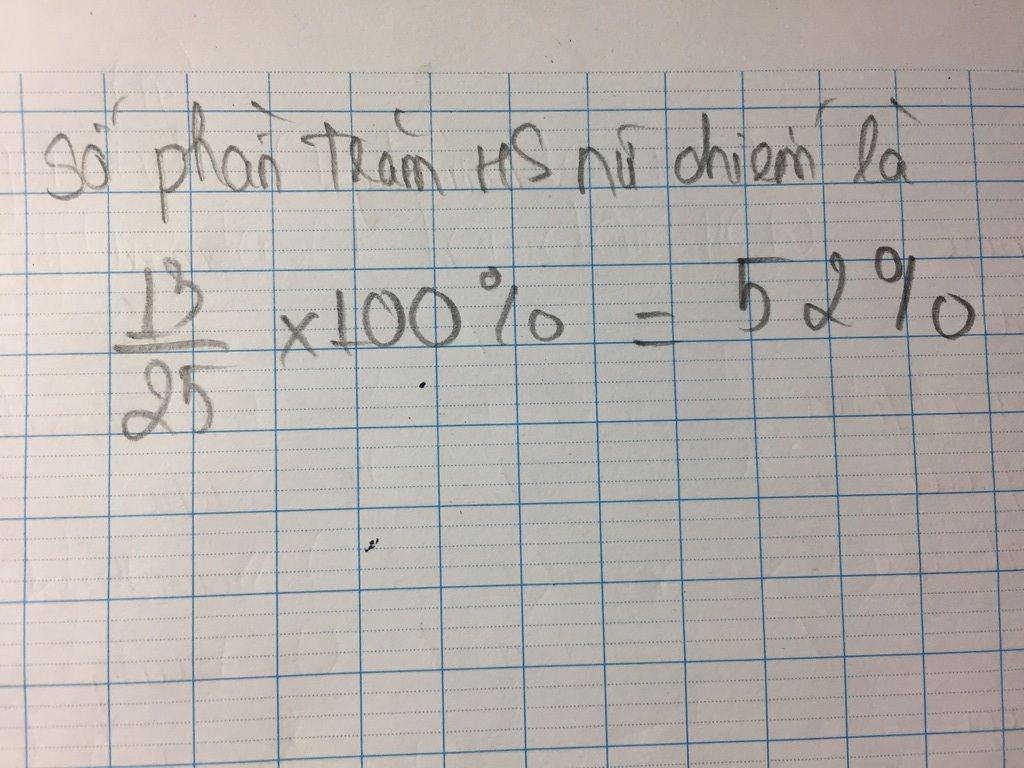 Số phần Trăm HS nữ chiếm là
13/25 x 100% = 52%